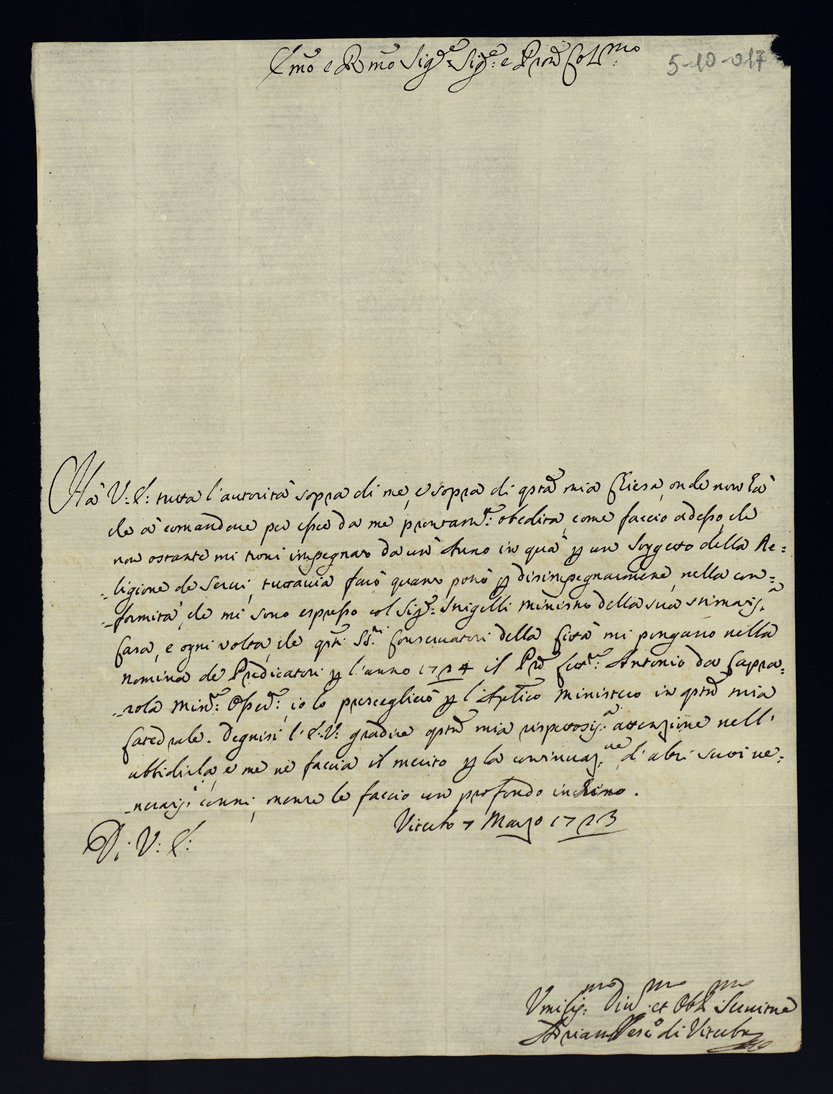 Emo e Rmo Sigre Sigre e Pron Colmo
5-10-017
Ha V: E: tutta l'autorità sopra di me, e sopra di qsta mia Chiesa, onde non hà
che à comandare per esser da me prontamte: obedita, come faccio adesso, che
non ostante mi trovi impegnato da un' Anno in quà p un Soggetto della Re=
=ligione de Servi, tuttavia farò quanto potrò p disimpegnarmene, nella con=
=formità, che mi sono espresso col Sigre: Strigelli ministro della sua stimatisa
Casa, e ogni volta, che qsti SSri Conservatori della Città mi pongano nella
nomina de Predicatori p l'anno 1724 il Pre Antonio da Capra=
=rola Minre: Osserte:, io lo presceglierò p l'Aplico ministero in qsta mia
Catedrale. Degnisi l'E:V: gradire qsta mia rispettosisa attenzione nell'
ubbidirla, e me ne faccia il merito p la continuazne d'altri suoi ve=
=neratisi cenni, mentre le faccio un profondo inchino.
Viterbo 7 Marzo 1723
Di V: E:
Umilismo Divmo et Obbmo Servitore
Adriano Vesco di Viterbo